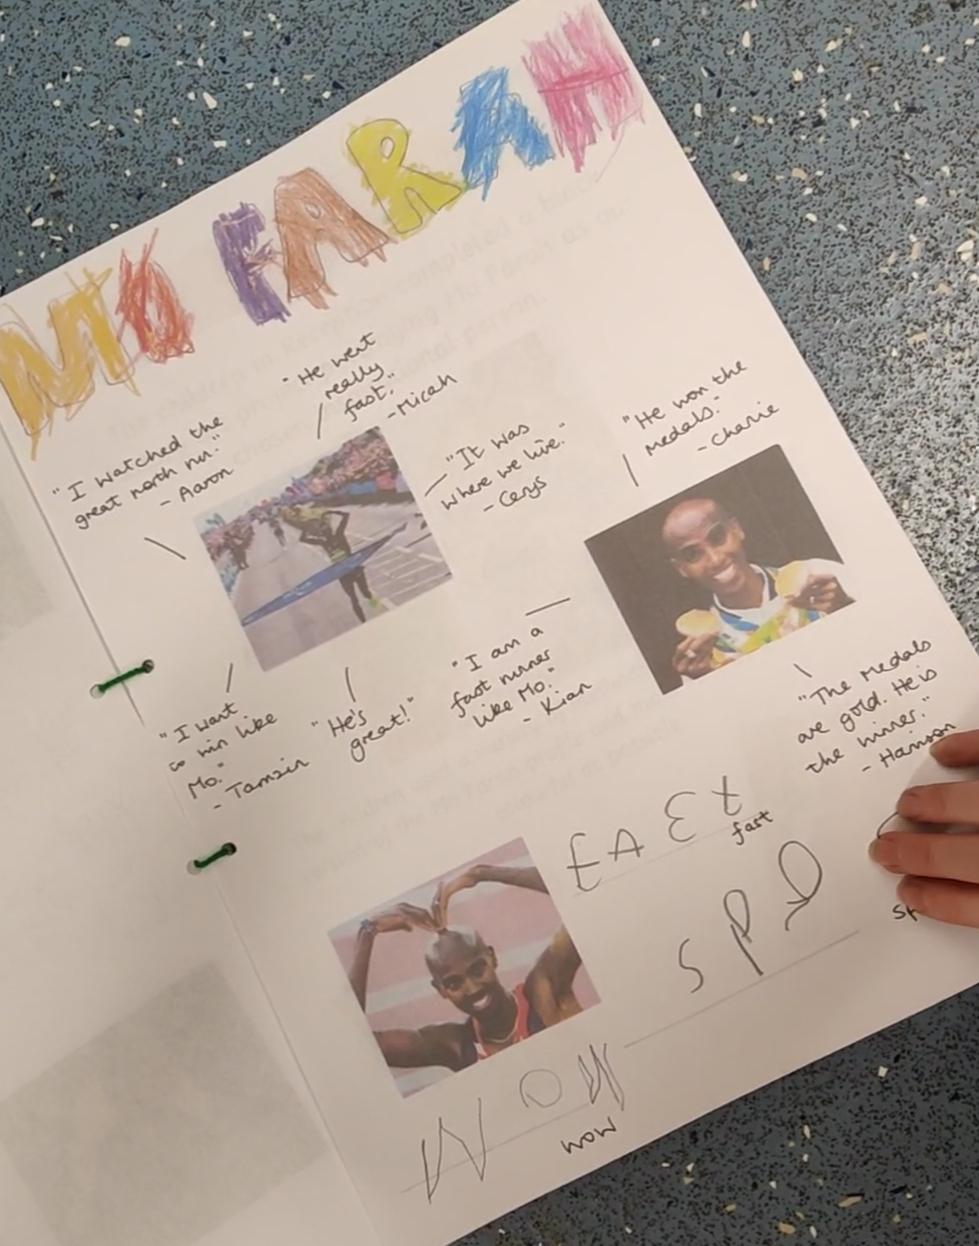 MO FARAH
"He went
really
fast."
-Micah
"I watched the
great north run."
- Aaron
"It was
where we live."
- Cerys
"He won the
medals."
- Charlie
"I want
to run like
Mo."
- Tamzin
"He's
great!"
"I am a
fast runner
like Mo."
- Kian
"The medals
are gold. He is
the winner."
- Harrison
fast
SPD
WOW
wow